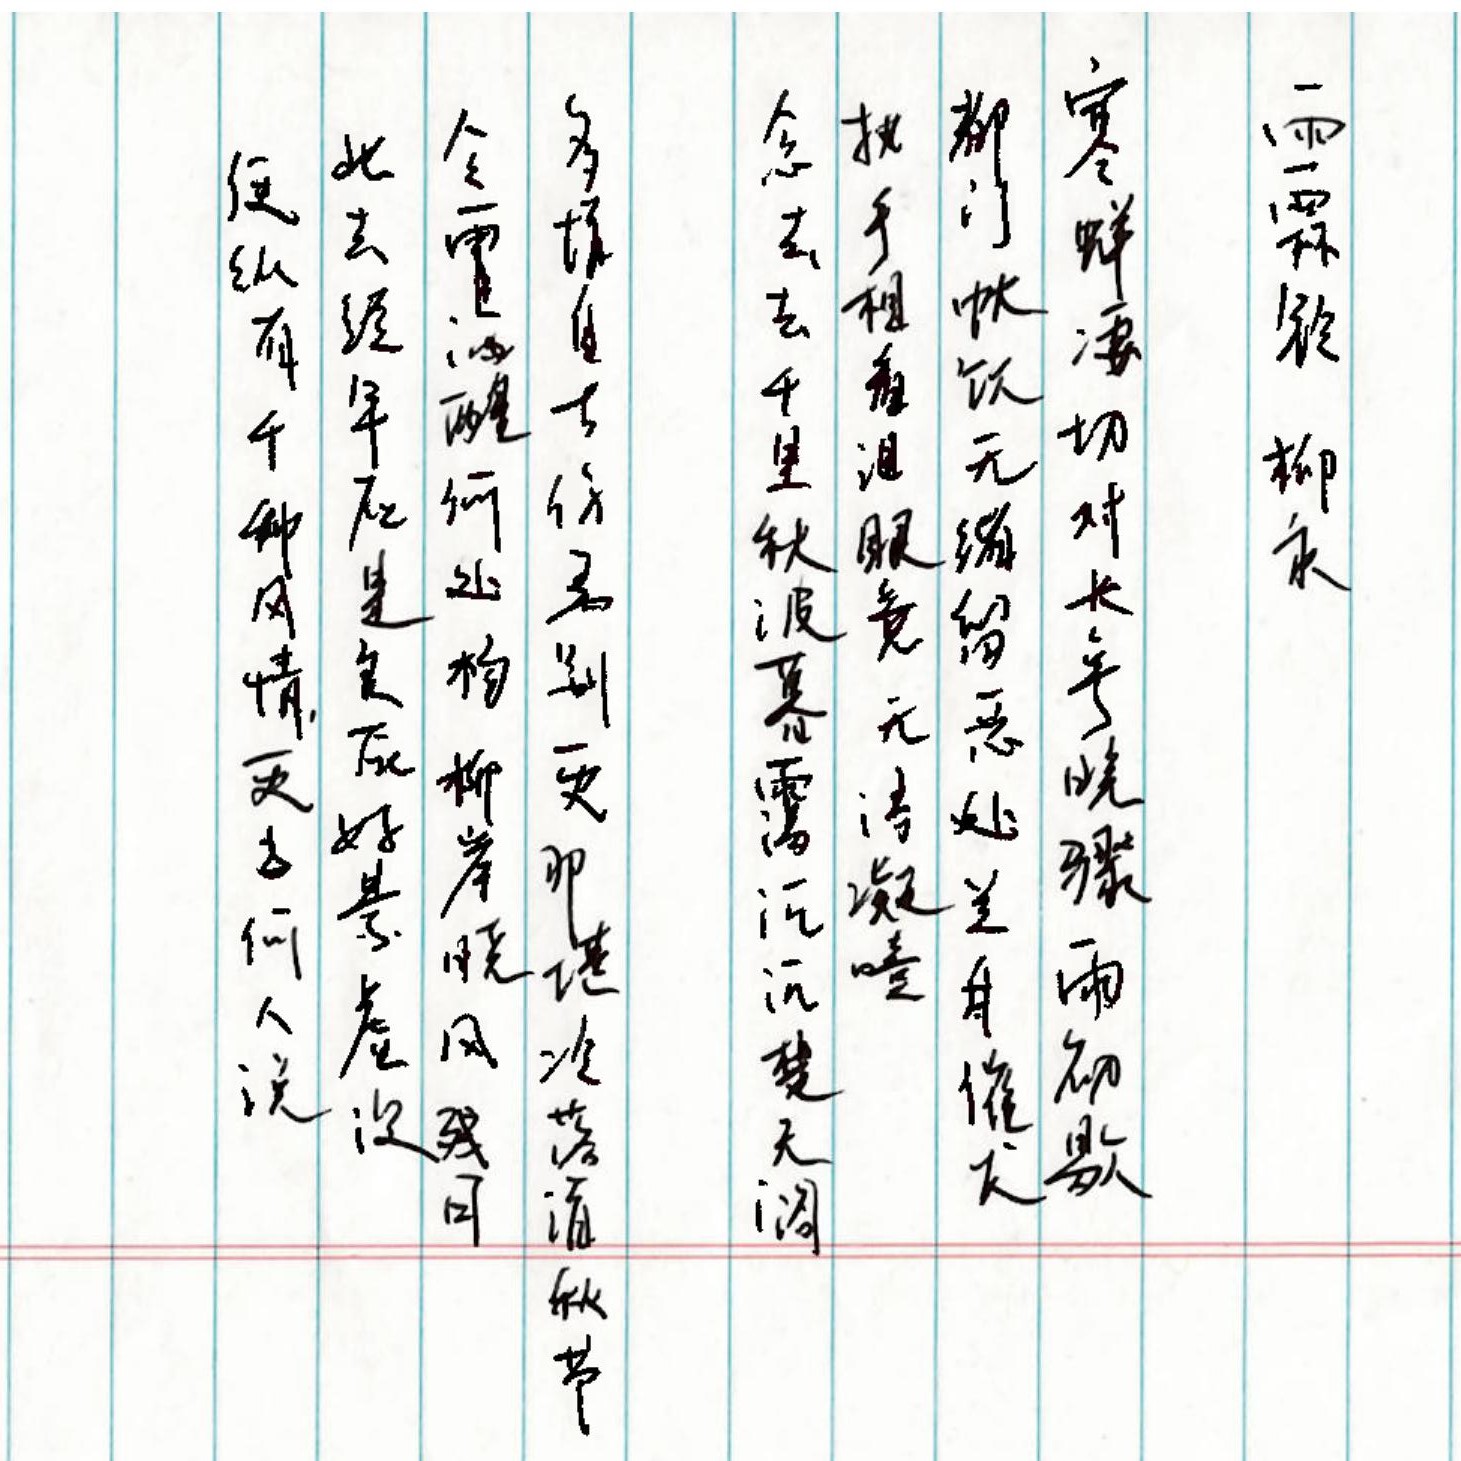 雨霖铃 柳永
寒蝉凄切对长亭晚骤雨初歇
都门帐饮无绪留恋处兰舟催发
执手相看泪眼竟无语凝噎
念去去千里秋波暮霭沉沉楚天阔
多情自古伤离别更那堪冷落清秋节
今霄酒醒何处杨柳岸晓风残月
此去经年应是良辰好景虚设
便纵有千种风情，更与何人说